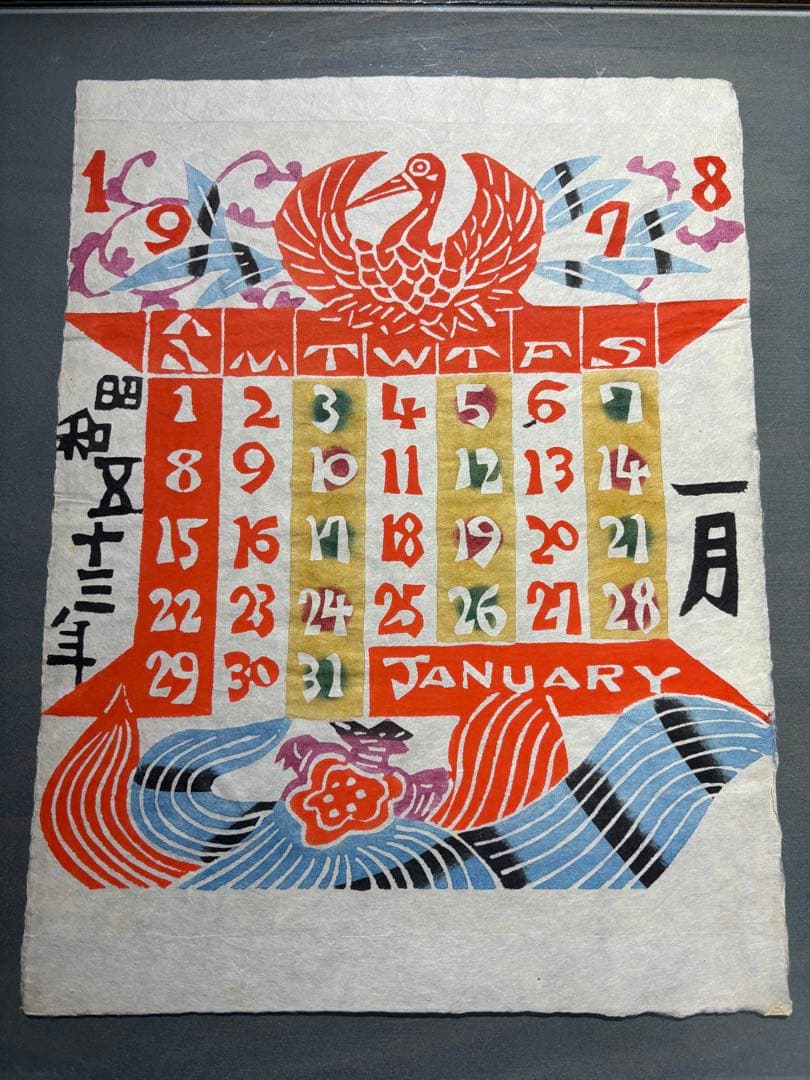 1978
S M T W T F S
1 2 3 4 5 6 7
8 9 10 11 12 13 14
15 16 17 18 19 20 21
22 23 24 25 26 27 28
29 30 31 JANUARY
昭和五十三年
一月